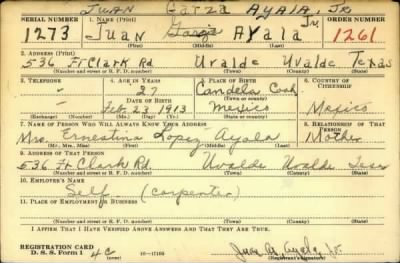 JUAN GARZA AYALA, JR
SERIAL NUMBER 1. NAME (Print) ORDER NUMBER
1273 Juan Garza Ayala Jr. 1261
(First) (Middle) (Last)
2. ADDRESS (Print)
536 Ft Clark Rd Uvalde Uvalde Texas
(Number and street or R. F. D. number) (Town) (County) (State)
3. TELEPHONE 4. AGE IN YEARS 5. PLACE OF BIRTH 6. COUNTRY OF CITIZENSHIP
27 Candela Coah
DATE OF BIRTH (Town or county)
Feb 23 1913 Mexico Mexico
(Exchange) (Number) (Mo.) (Day) (Yr.) (State or country)
7. NAME OF PERSON WHO WILL ALWAYS KNOW YOUR ADDRESS 8. RELATIONSHIP OF THAT PERSON
Mrs. Ernestina Lopez Ayala Mother
(Mr., Mrs., Miss) (First) (Middle) (Last)
9. ADDRESS OF THAT PERSON
536 Ft. Clark Rd. Uvalde Uvalde Texas
(Number and street or R. F. D. number) (Town) (County) (State)
10. EMPLOYER'S NAME
Self (carpenter)
11. PLACE OF EMPLOYMENT OR BUSINESS
(Number and street or R. F. D. number) (Town) (County) (State)
I AFFIRM THAT I HAVE VERIFIED ABOVE ANSWERS AND THAT THEY ARE TRUE.
REGISTRATION CARD
D. S. S. Form 1 4C 16—17105 Juan G. Ayala Jr.
(Registrant's signature)